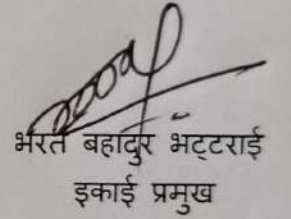 भरत बहादुर भट्टराई
इकाई प्रमुख